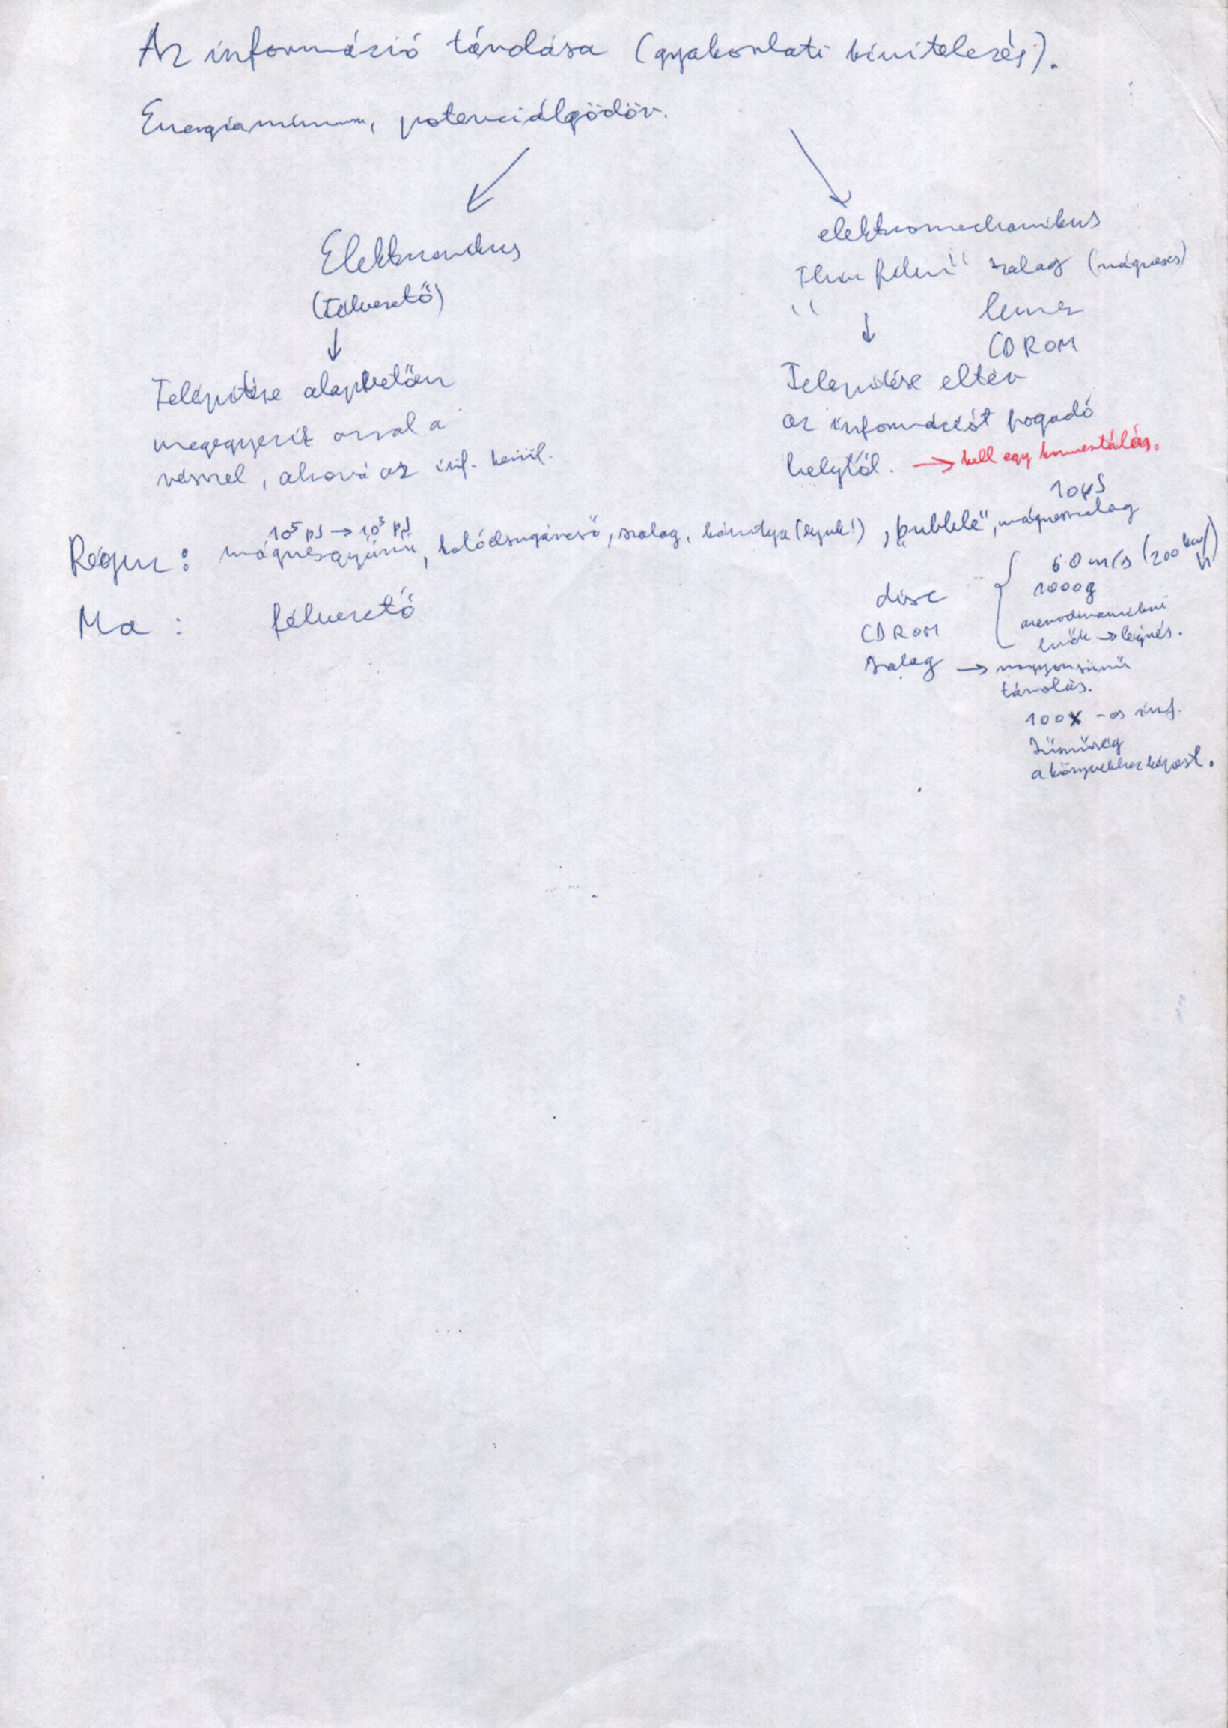 Az információ tárolása (gyakorlati kivitelezés).
Energiaminimum, potenciálgödör.
Elektronikus
(Félvezető)
↓
Telepítése alapvetően
megegyezik azzal a
résszel, ahová az inf. kerül.
elektromechanikus
szalag (mágneses)
lemez
CDROM
↓
Telepítése eltér
az információt fogadó
helytől. → kell egy konvertálás.
10⁵ pJ → 10³ pJ
10 μs
Régen: mágnesgyűrű, katódsugárcső, szalag, kártya (lyuk!), „bubble", mágnesszalag
Ma: félvezető
disc
CDROM
szalag → nagyon sűrű
tárolás.
60 m/s (200 km/h)
1000g
aerodinamikai
erők → légrés.
100x-os inf.
sűrűség
a könyvekhez képest.